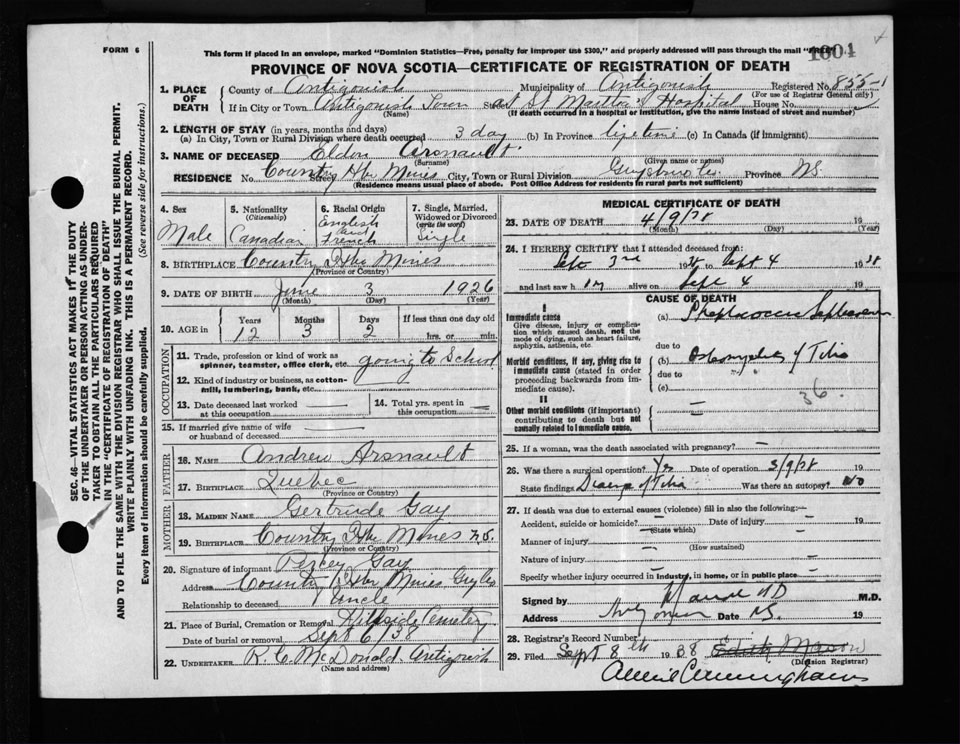 FORM 6
This form if placed in an envelope, marked "Dominion Statistics—Free, penalty for improper use $300," and properly addressed will pass through the mail "Free."
1604
PROVINCE OF NOVA SCOTIA—CERTIFICATE OF REGISTRATION OF DEATH
SEC. 46. VITAL STATISTICS ACT MAKES IT THE DUTY
OF THE UNDERTAKER OR PERSON ACTING AS UNDER-
TAKER TO OBTAIN ALL THE PARTICULARS REQUIRED
IN THE "CERTIFICATE OF REGISTRATION OF DEATH"
AND TO FILE THE SAME WITH THE DIVISION REGISTRAR WHO SHALL ISSUE THE BURIAL PERMIT.
WRITE PLAINLY WITH UNFADING INK. THIS IS A PERMANENT RECORD.
Every item of information should be carefully supplied. (See reverse side for instructions.)
1. PLACE OF DEATH County of Antigonish Municipality of Antigonish Registered No. 855-1
(For use of Registrar General only)
If in City or Town Antigonish Town Street at St Martha's Hospital House No.
(Name) (If death occurred in a hospital or institution, give the name instead of street and number)
2. LENGTH OF STAY (in years, months and days)
(a) In City, Town or Rural Division where death occurred 3 day (b) In Province lifetime (c) In Canada (if immigrant)
3. NAME OF DECEASED Eldon Arsnault
(Surname) (Given name or names)
RESIDENCE No. Street Country Hbr Mines City, Town or Rural Division Guysboro Co. Province N.S.
(Residence means usual place of abode. Post Office Address for residents in rural parts not sufficient)
4. Sex Male
5. Nationality (Citizenship) Canadian
6. Racial Origin English and French
7. Single, Married, Widowed or Divorced (write the word) Single
8. BIRTHPLACE Country Hbr Mines
(Province or Country)
9. DATE OF BIRTH June 3 1926
(Month) (Day) (Year)
10. AGE in Years Months Days If less than one day old
12 3 2 hrs. or min.
OCCUPATION
11. Trade, profession or kind of work as
spinner, teamster, office clerk, etc. going to School
12. Kind of industry or business, as cotton-
mill, lumbering, bank, etc.
13. Date deceased last worked
at this occupation
14. Total yrs. spent in
this occupation
15. If married give name of wife
or husband of deceased
FATHER
16. NAME Andrew Arsnault
17. BIRTHPLACE Quebec
(Province or Country)
MOTHER
18. MAIDEN NAME Gertrude Gay
19. BIRTHPLACE Country Hbr Mines N.S.
(Province or Country)
20. Signature of informant Percy Gay
Address Country Hbr Mines Guy Co
Relationship to deceased Uncle
21. Place of Burial, Cremation or Removal Hillside Cemetery
Date of burial or removal Sept 6/38
22. UNDERTAKER R. C. McDonald Antigonish
(Name and address)
MEDICAL CERTIFICATE OF DEATH
23. DATE OF DEATH 4/9/38 19
(Month) (Day) (Year)
24. I HEREBY CERTIFY that I attended deceased from:
Sept 3rd 1938 to Sept 4 1938
and last saw him alive on Sept 4 19
CAUSE OF DEATH
I
Immediate cause
Give disease, injury or complica-
tion which caused death, not the
mode of dying, such as heart failure,
asphyxia, asthenia, etc.
(a) Streptococcus Septicaemia
due to
Morbid conditions, if any, giving rise to
immediate cause (stated in order
proceeding backwards from im-
mediate cause).
(b) Osteomyelitis of Tibia
due to
(c)
36.
II
Other morbid conditions (if important)
contributing to death but not
causally related to immediate cause.
25. If a woman, was the death associated with pregnancy?
26. Was there a surgical operation? Yes Date of operation 3/9/38 19
State findings Disease of Tibia Was there an autopsy? No
27. If death was due to external causes (violence) fill in also the following:
Accident, suicide or homicide? Date of injury 19
(State which)
Manner of injury
(How sustained)
Nature of injury
Specify whether injury occurred in industry, in home, or in public place
Signed by M.D.
Address Antigonish N.S. Date 19
28. Registrar's Record Number
29. Filed Sept 8th 1938 Edith Mason
(Division Registrar)
Cunningham